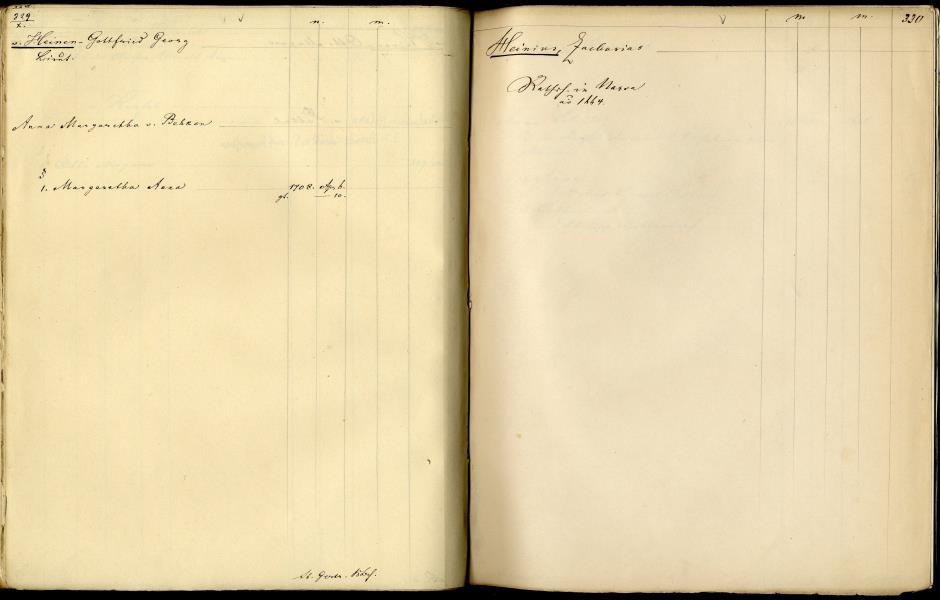 329
n. m.
v. Heinen Gottfried Georg
Lieut.
Anna Margaretha v. Behken
1. Margaretha Anna 1708. Apr. 6.
gt. — 10.
n. m. 330
Heinius, Zacharias
Rathsh. in Narva
ao 1664.